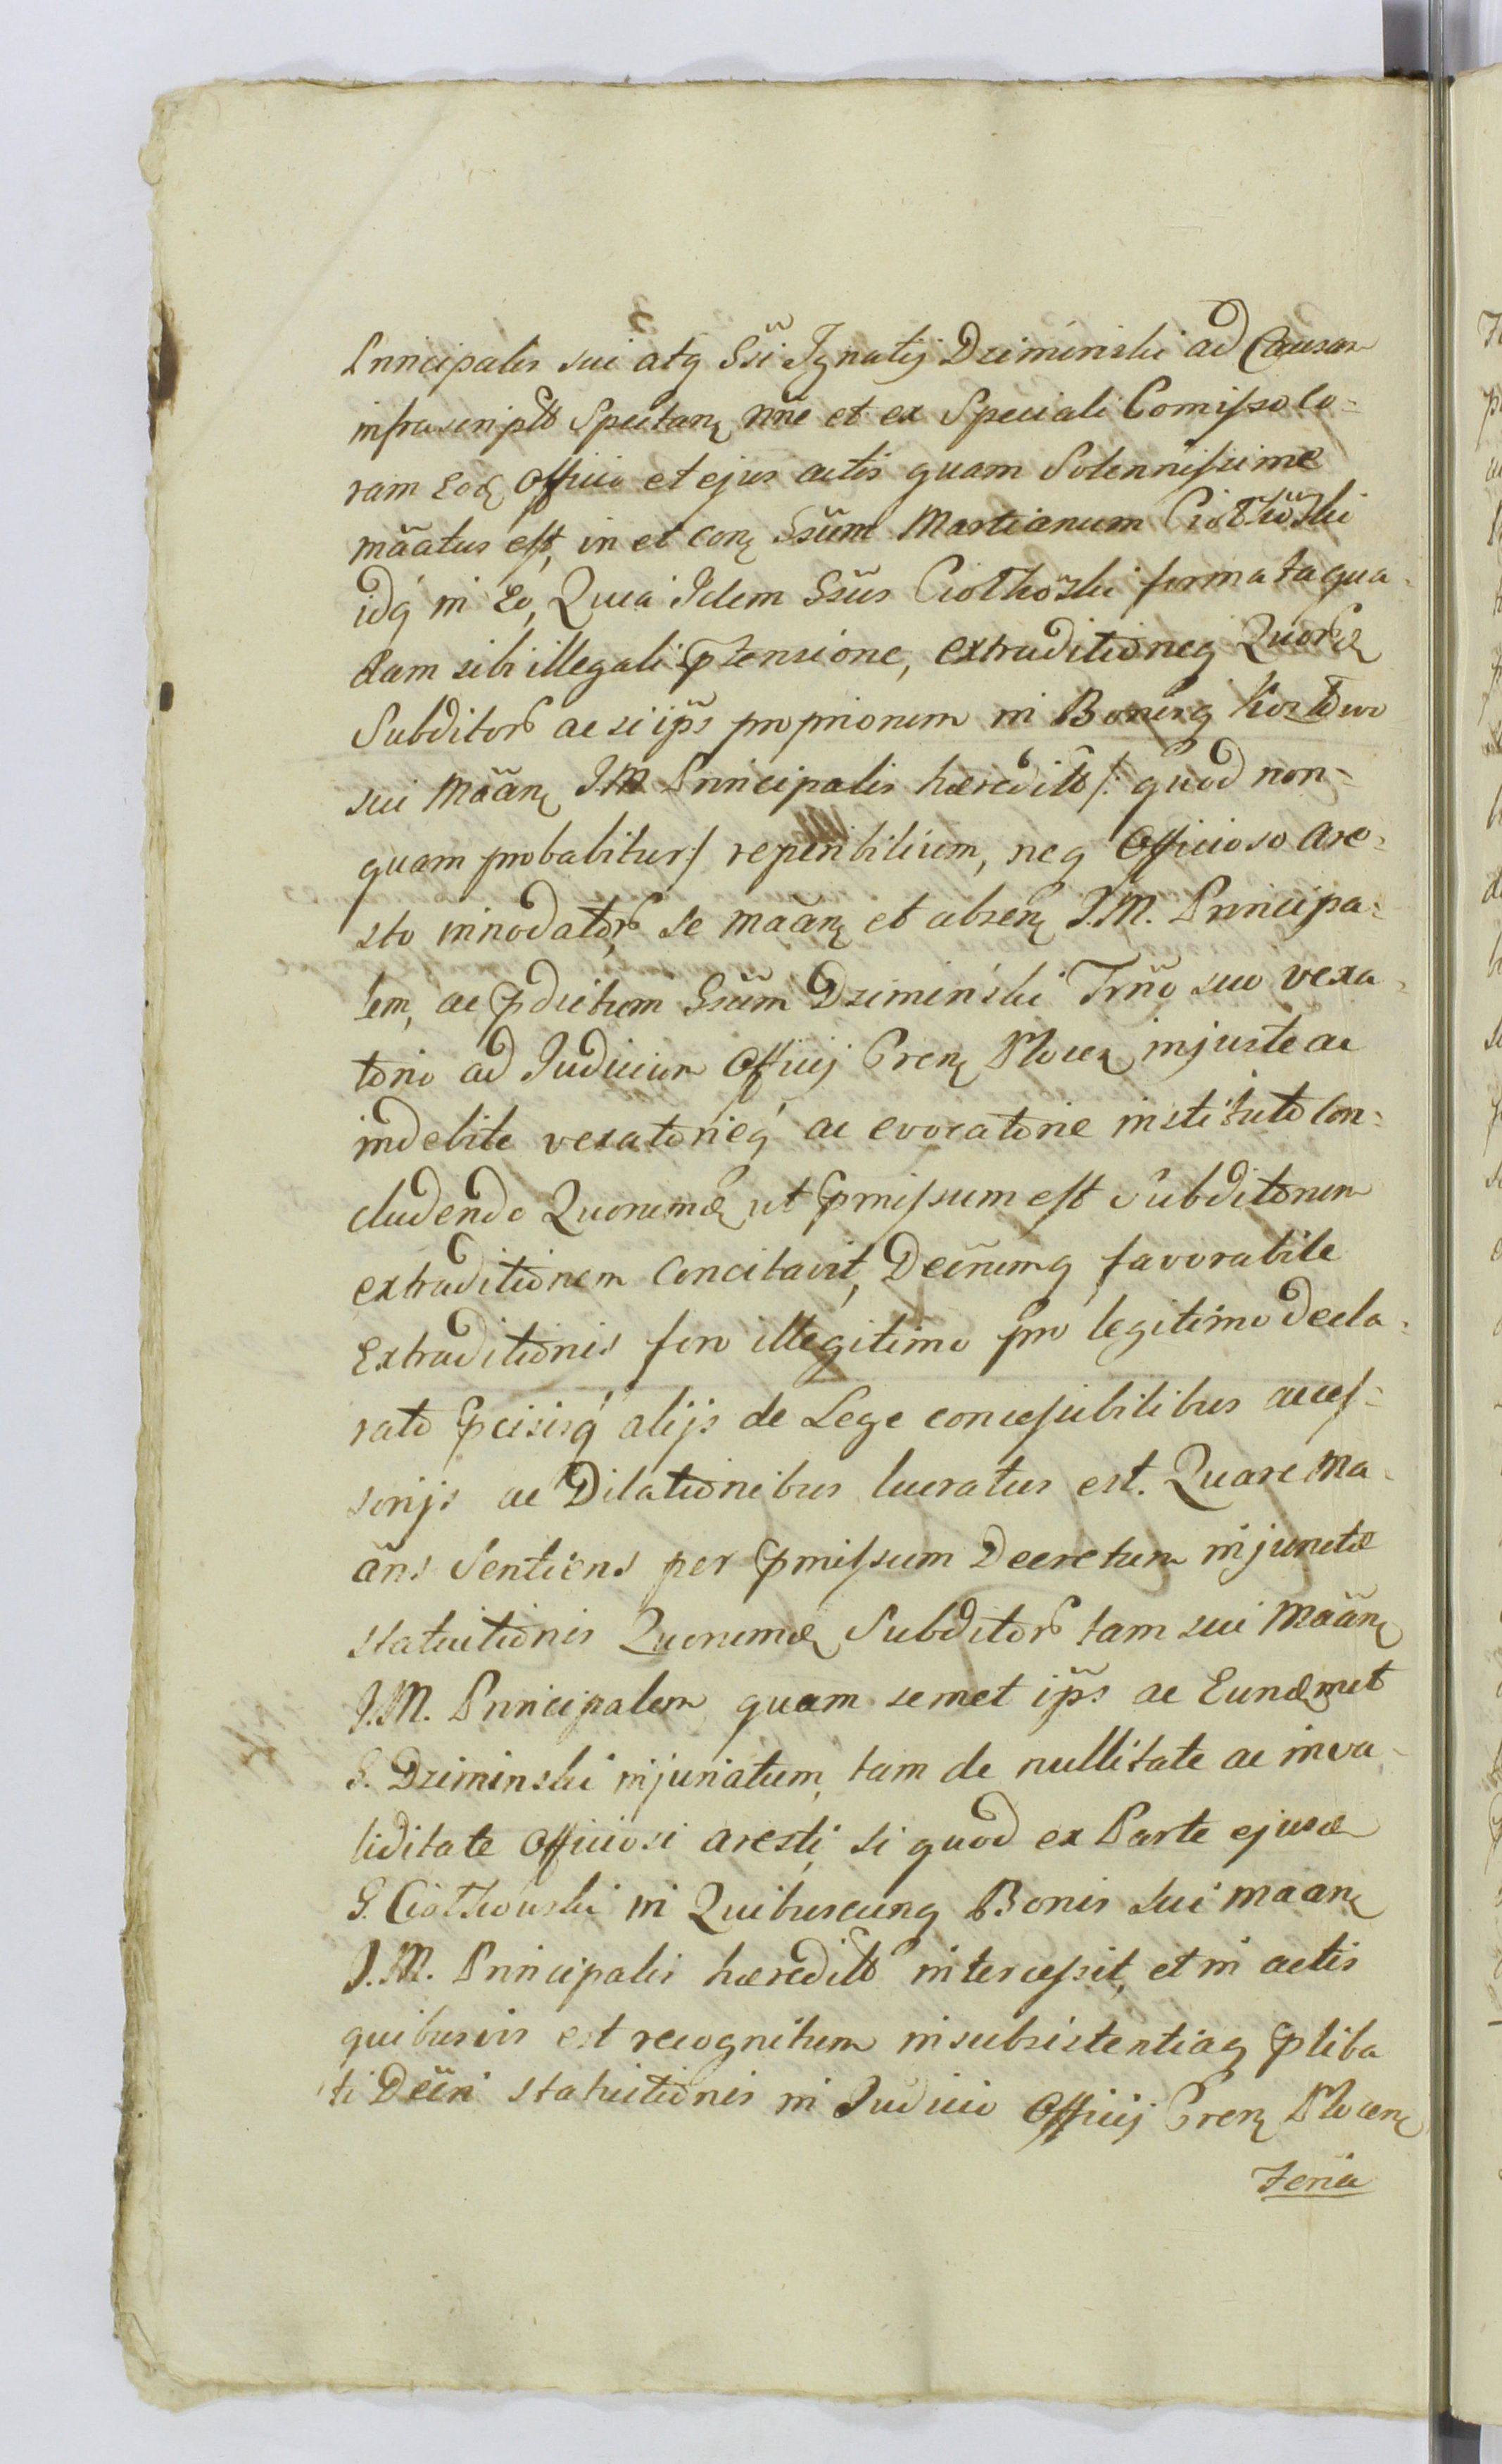 Principalis sui atq Gsi Ignatij Dziminski ad Causam
infrascriptt Spectanẹ nn̄e et ex Speciali Comisso Co=
ram Eod Officio et ejus actis quam Solennissime
mãatus est, in et conẹ Gsūm Martianum Ciołkōski
idq in Eo, Quia Idem Gsūs Ciołkōski formata qua=
dam sibi illegali ptensione, extraditioneq Quord
Subditor ac si ips̄ propriorum in Bonisq
sui Mãanẹ J.M. Principalis hæreditt /: quod non=
quam probabitur:/ reperibilium, neq Officioso are=
sto innodator se mãanẹ et absenẹ J.M. Principa=
lem, ac pdictum Gsūm Dziminski Trn̄o suo vexa=
torio ad Judicium Officij Crenẹ Plocẹ injuste ac
indebite vexatorieq ac evocatorie instituto Con=
cludendo Quorumd ut pmissum est Subditorum
extraditionem Concitavit, Decr̄umq favorabile
Extraditionis foro illegitimo pro legitimo decla=
rato pcisisq alijs de Lege concessibilibus acces=
sorijs ac Dilationibus lucratus est. Quare Ma=
ãns Sentiens per pmissum Decretum injunctæ
statuitionis Quorumd Subditor tam sui Mãanẹ
J.M. Principalem quam semet ips̄ ac Eundmet
G. Dziminski injuriatum, tam de nullitate ac inva=
liditate Officiosi aresti, si quod ex Parte ejusd
G. Ciołkowski in Quibuscunq Bonis sui maanẹ
J.M. Principalis hæreditt intercessit, et in actis
quibusvis est recognitum insubsistentiaq pliba
ti Decr̄i statuitionis in Judicio Officij Crenẹ Plocenẹ
Feria